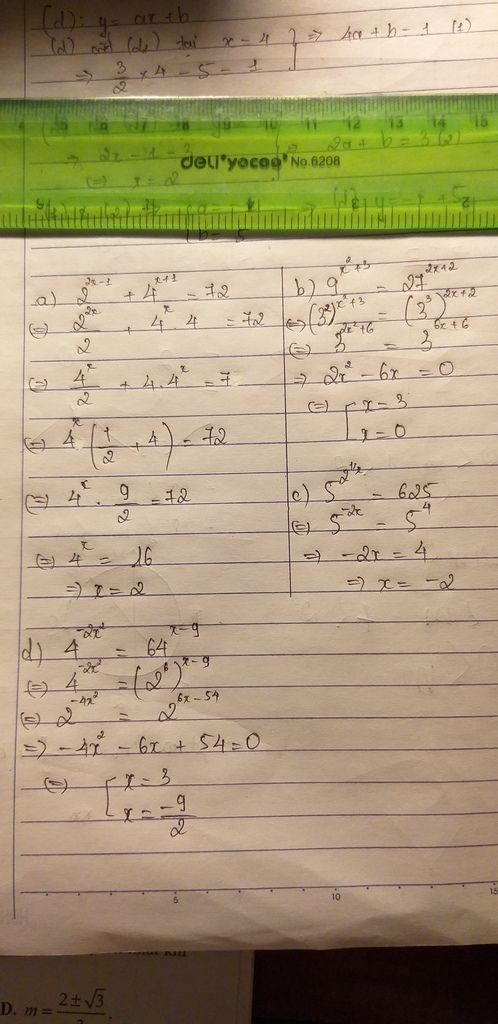 (d): y = ax + b
(d) cắt (d₁) tại x = 4 } ⇒ 4a + b = 1 (1)
⇒ 3/2 × 4 − 5 = 1
⇒ 2x − 1 = 3 ⇒ 2a + b = 3 (2)
(=) x = 2
deli®yacoo® No.6208
a) 2^(2x−1) + 4^(x+1) = 72
(=) 2^(2x)/2 + 4^x . 4 = 72
(=) 4^x/2 + 4.4^x = 7
(=) 4^x (1/2 + 4) = 72
(=) 4^x . 9/2 = 72
(=) 4^x = 16
⇒ x = 2
b) 9^(x²+3) = 27^(2x+2)
(=) (3²)^(x²+3) = (3³)^(2x+2)
(=) 3^(2x²+6) = 3^(6x+6)
⇒ 2x² − 6x = 0
(=) [ x = 3
x = 0
c) = 625
(=) 5^(−2x) = 5^4
⇒ −2x = 4
⇒ x = −2
d) 4^(−2x²) = 64^(x−9)
(=) 4^(−2x²) = (2^6)^(x−9)
(=) 2^(−4x²) = 2^(6x−54)
⇒ −4x² − 6x + 54 = 0
(=) [ x = 3
x = −9/2
5 10 15
D. m = (2 ± √3)/